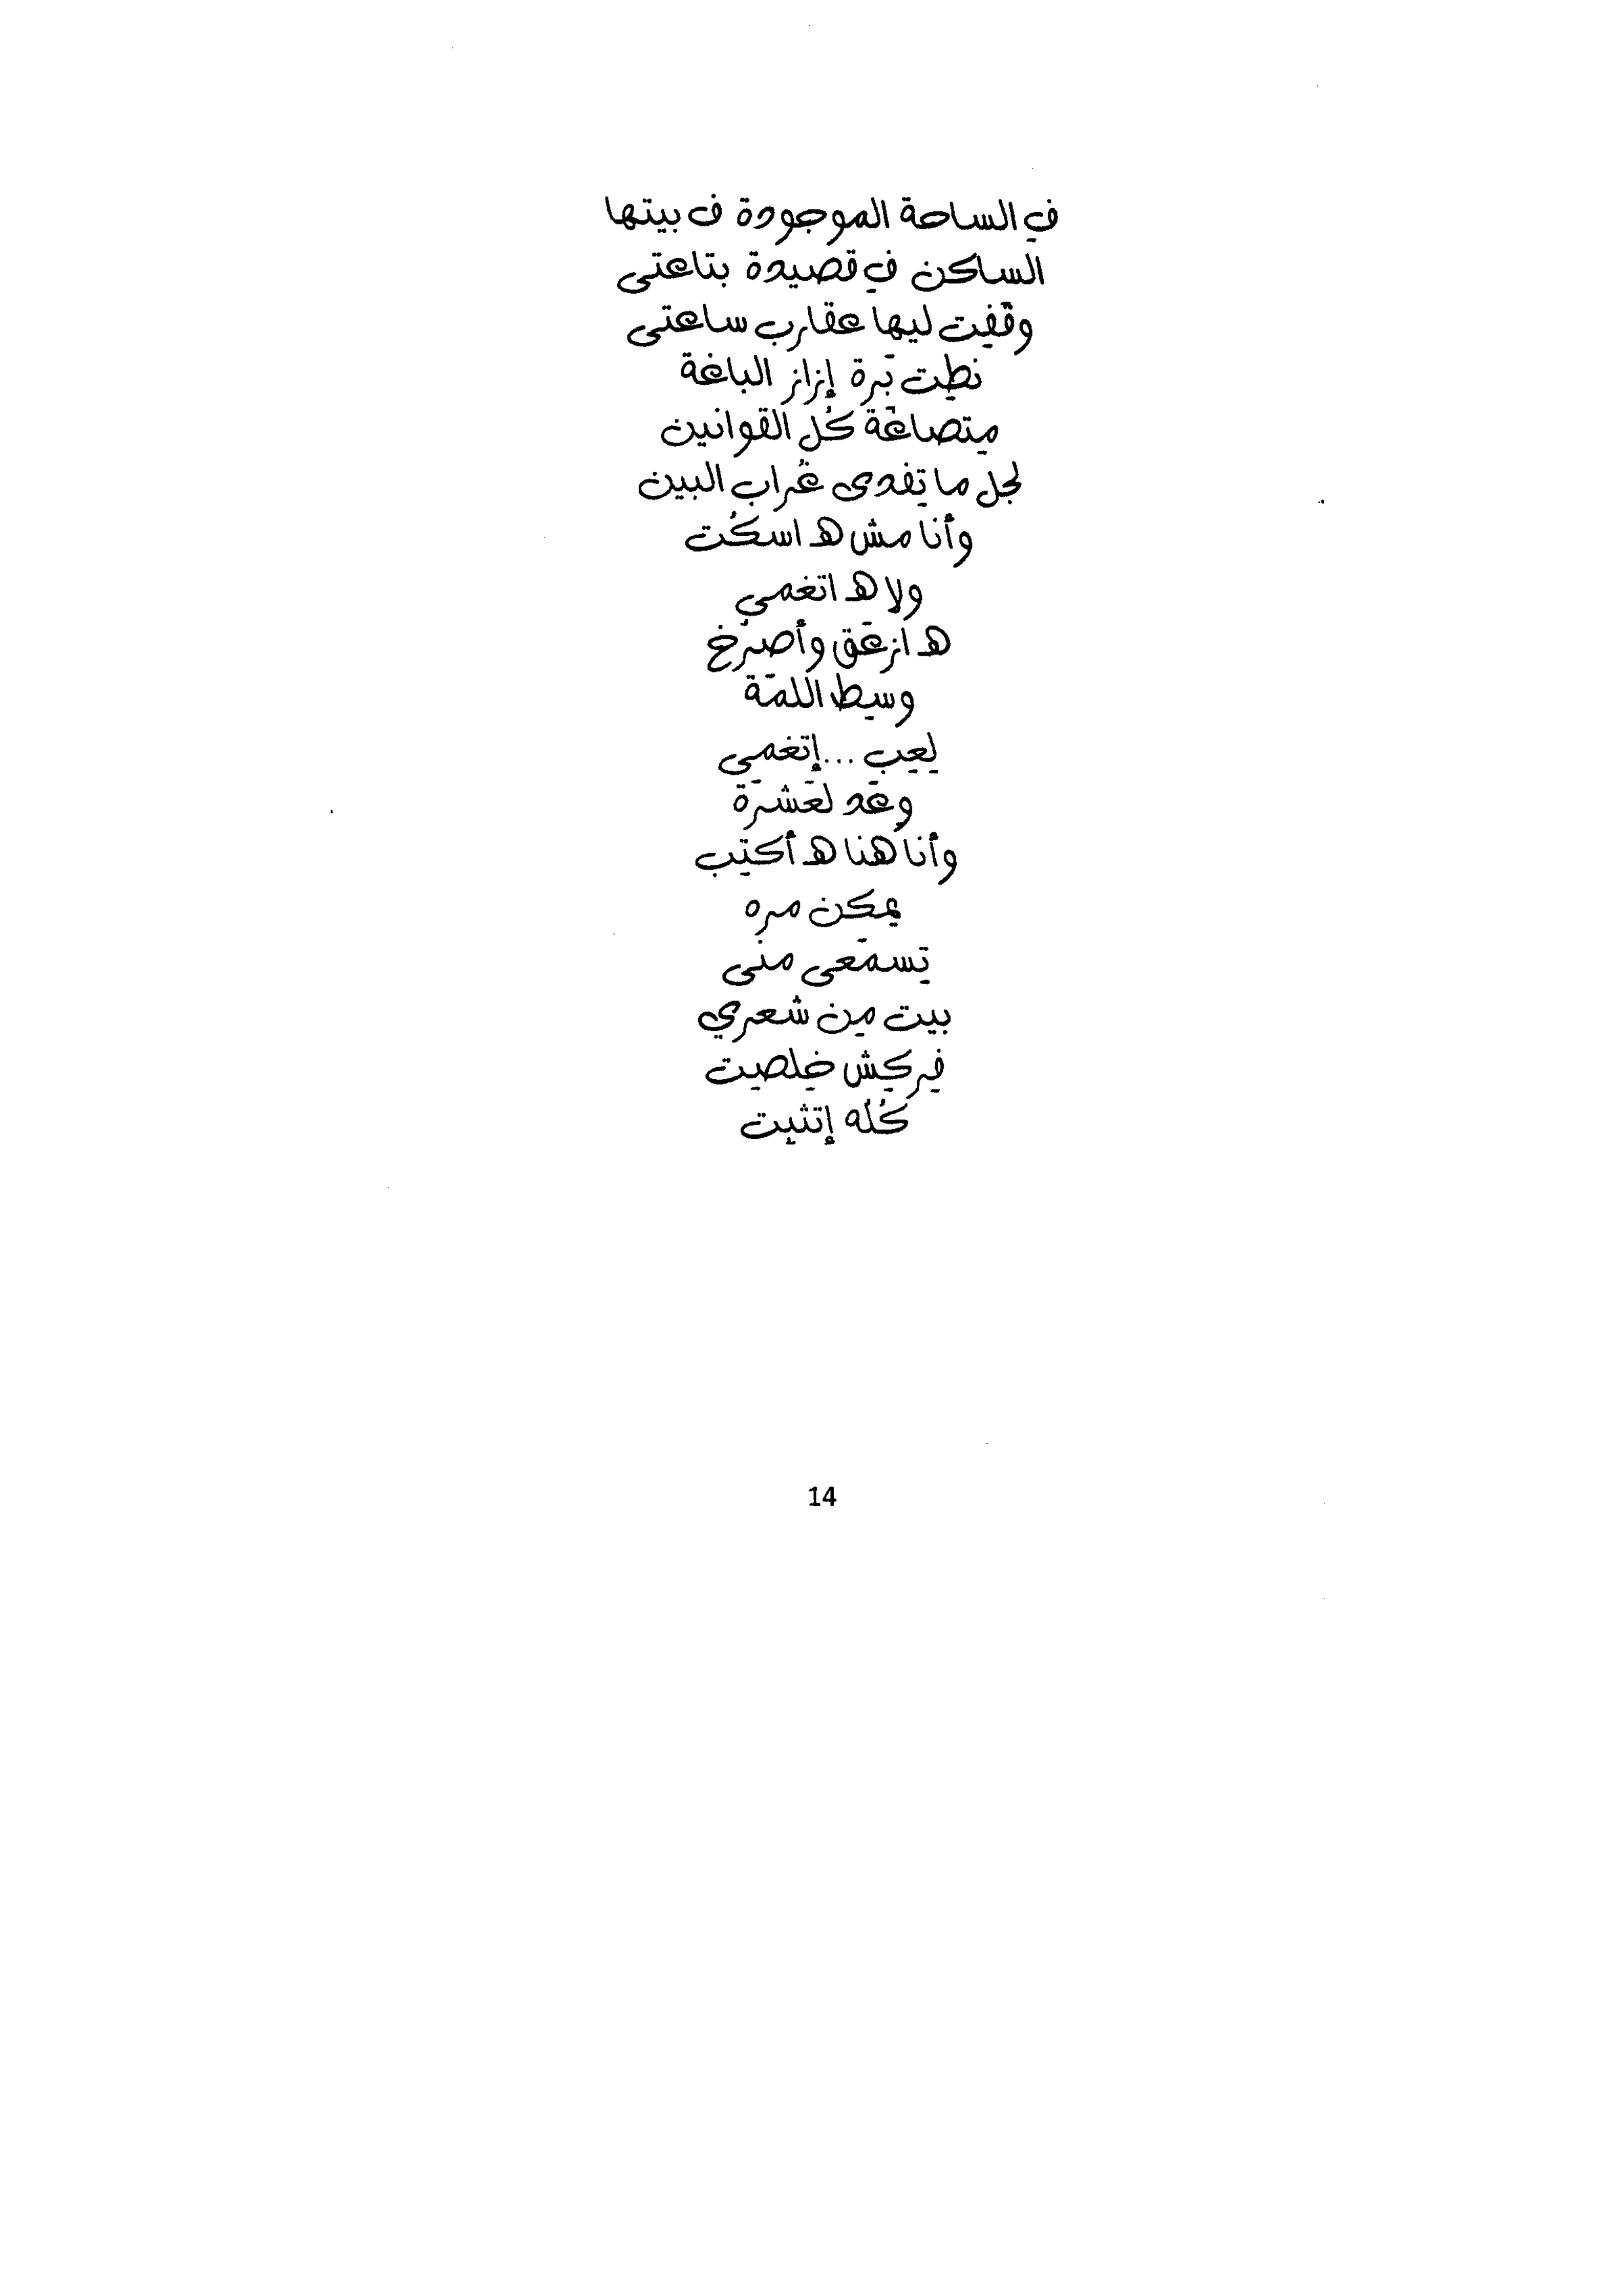 فِ الساحة الموجودة ف بيتها
الساكن فِ قصيدة بتاعتى
وقَفِت ليها عقارب ساعتى
نطِت بَرة إزاز الباغة
مِتصاغَة كُل القوانين
لجل ما تِفدى غُراب البين
وأنا مش هـ اسكُت
ولا هـ اتغمي
هـ ازعَق وأصرُخ
وسِط اللَمَة
لِعِب ...إتغمى
وعَد لعَشَرَة
وأنا هُنا هـ أكتِب
يمكن مره
تِسمَعى منى
بيت مِن شعري
فِركِش خِلصِت
كُلُه إتثبِت
14